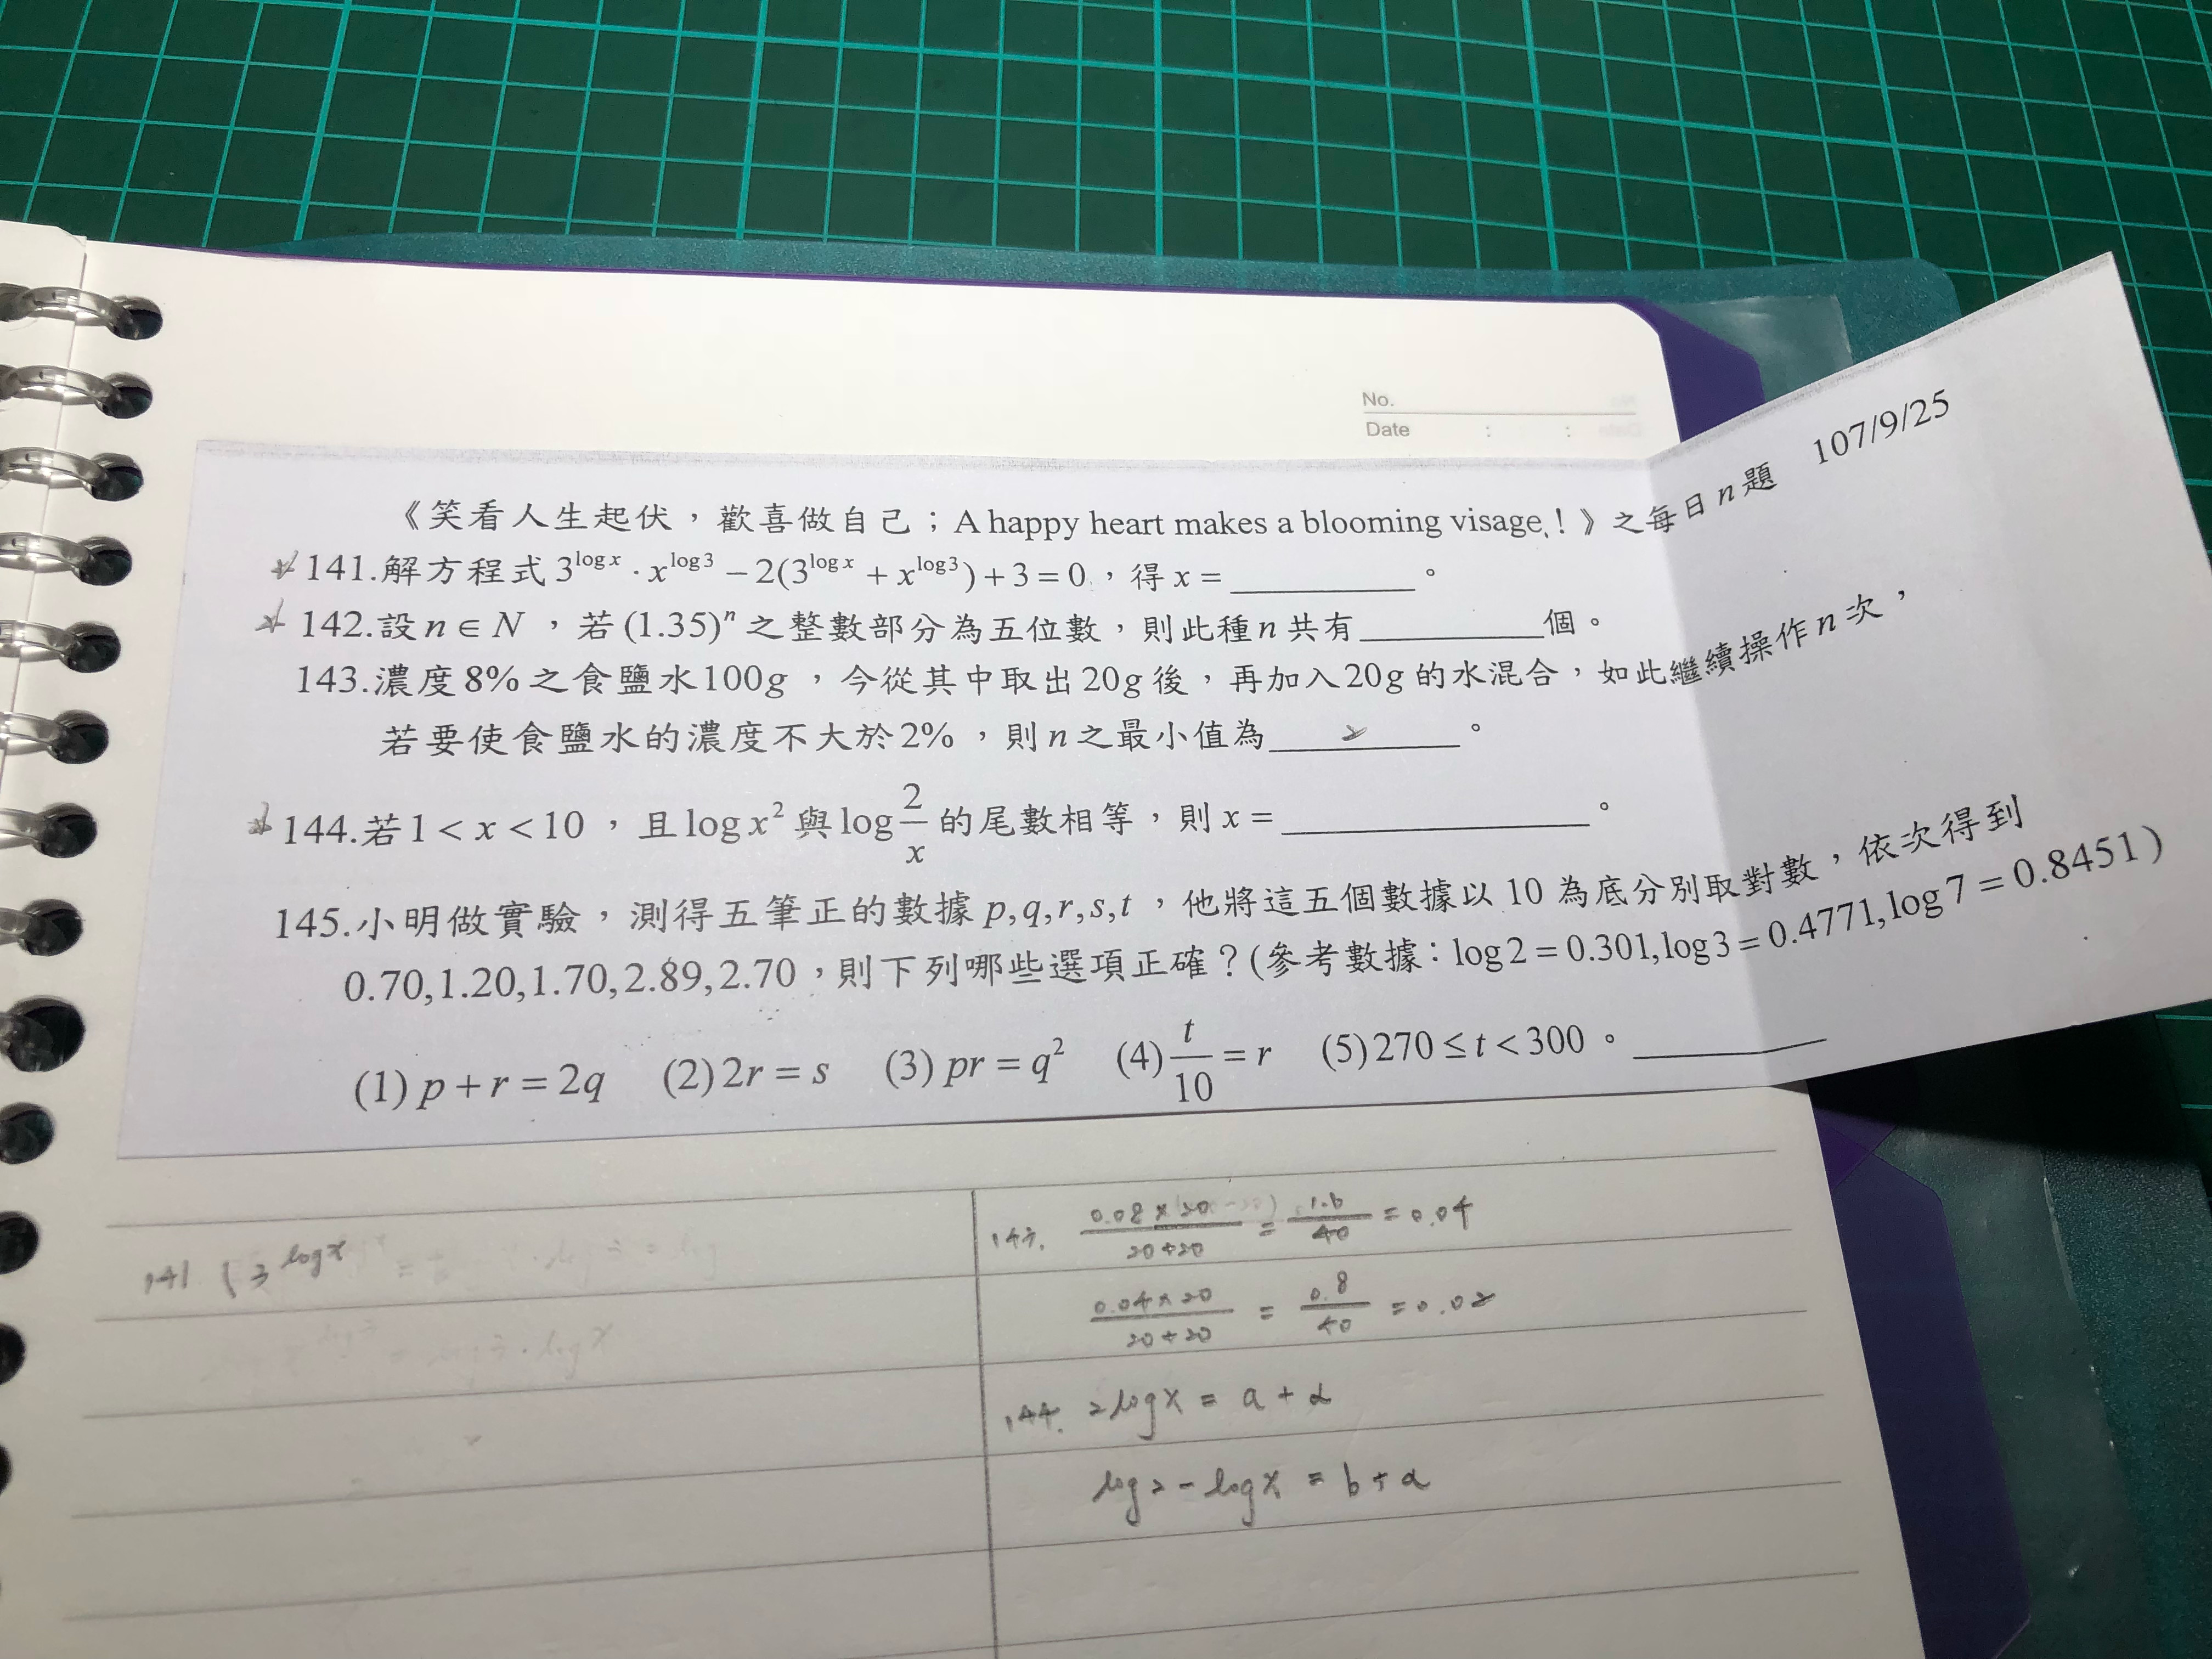 No.
Date : :
《笑看人生起伏，歡喜做自己；A happy heart makes a blooming visage.！》之每日n題 107/9/25
141.解方程式 3^{log x}·x^{log 3}−2(3^{log x}+x^{log 3})+3=0，得 x=＿＿＿＿。
142.設 n∈N，若 (1.35)^n 之整數部分為五位數，則此種 n 共有＿＿＿＿個。
143.濃度8%之食鹽水100g，今從其中取出20g後，再加入20g的水混合，如此繼續操作n次，
若要使食鹽水的濃度不大於2%，則n之最小值為 2 。
144.若1<x<10，且 log x² 與 log 2/x 的尾數相等，則 x=＿＿＿＿。
145.小明做實驗，測得五筆正的數據 p,q,r,s,t，他將這五個數據以 10 為底分別取對數，依次得到
0.70,1.20,1.70,2.89,2.70，則下列哪些選項正確？(參考數據：log2=0.301,log3=0.4771,log7=0.8451)
(1) p+r=2q (2) 2r=s (3) pr=q² (4) t/10=r (5) 270≤t<300。＿＿＿＿
141 (3^{log x}
143. 0.08×20/20+20 = 1.6/40 = 0.04
0.04×20/20+20 = 0.8/40 = 0.02
144. 2logx = a+α
log2-logx = b+α